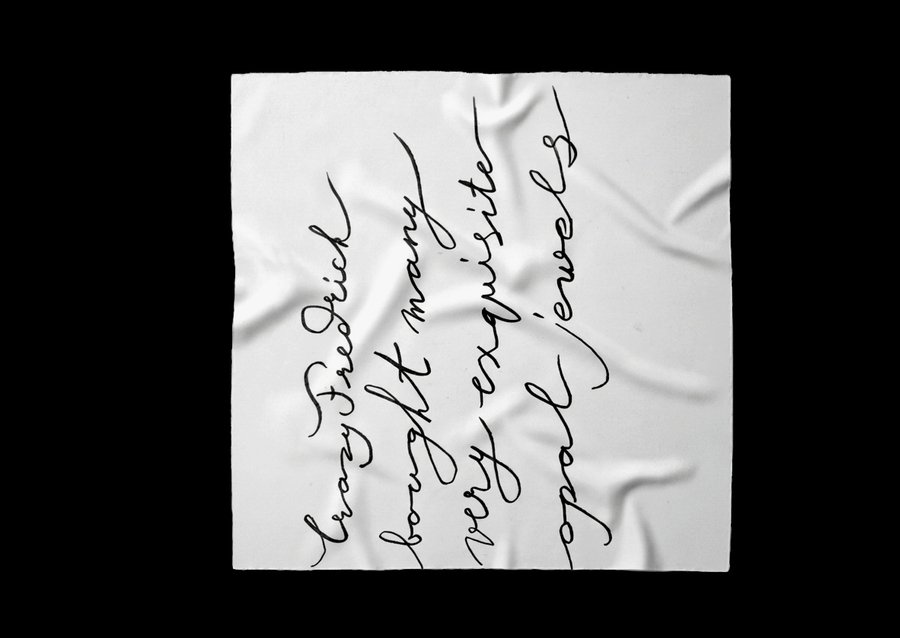 Crazy Fredrick
bought many
very exquisite
opal jewels